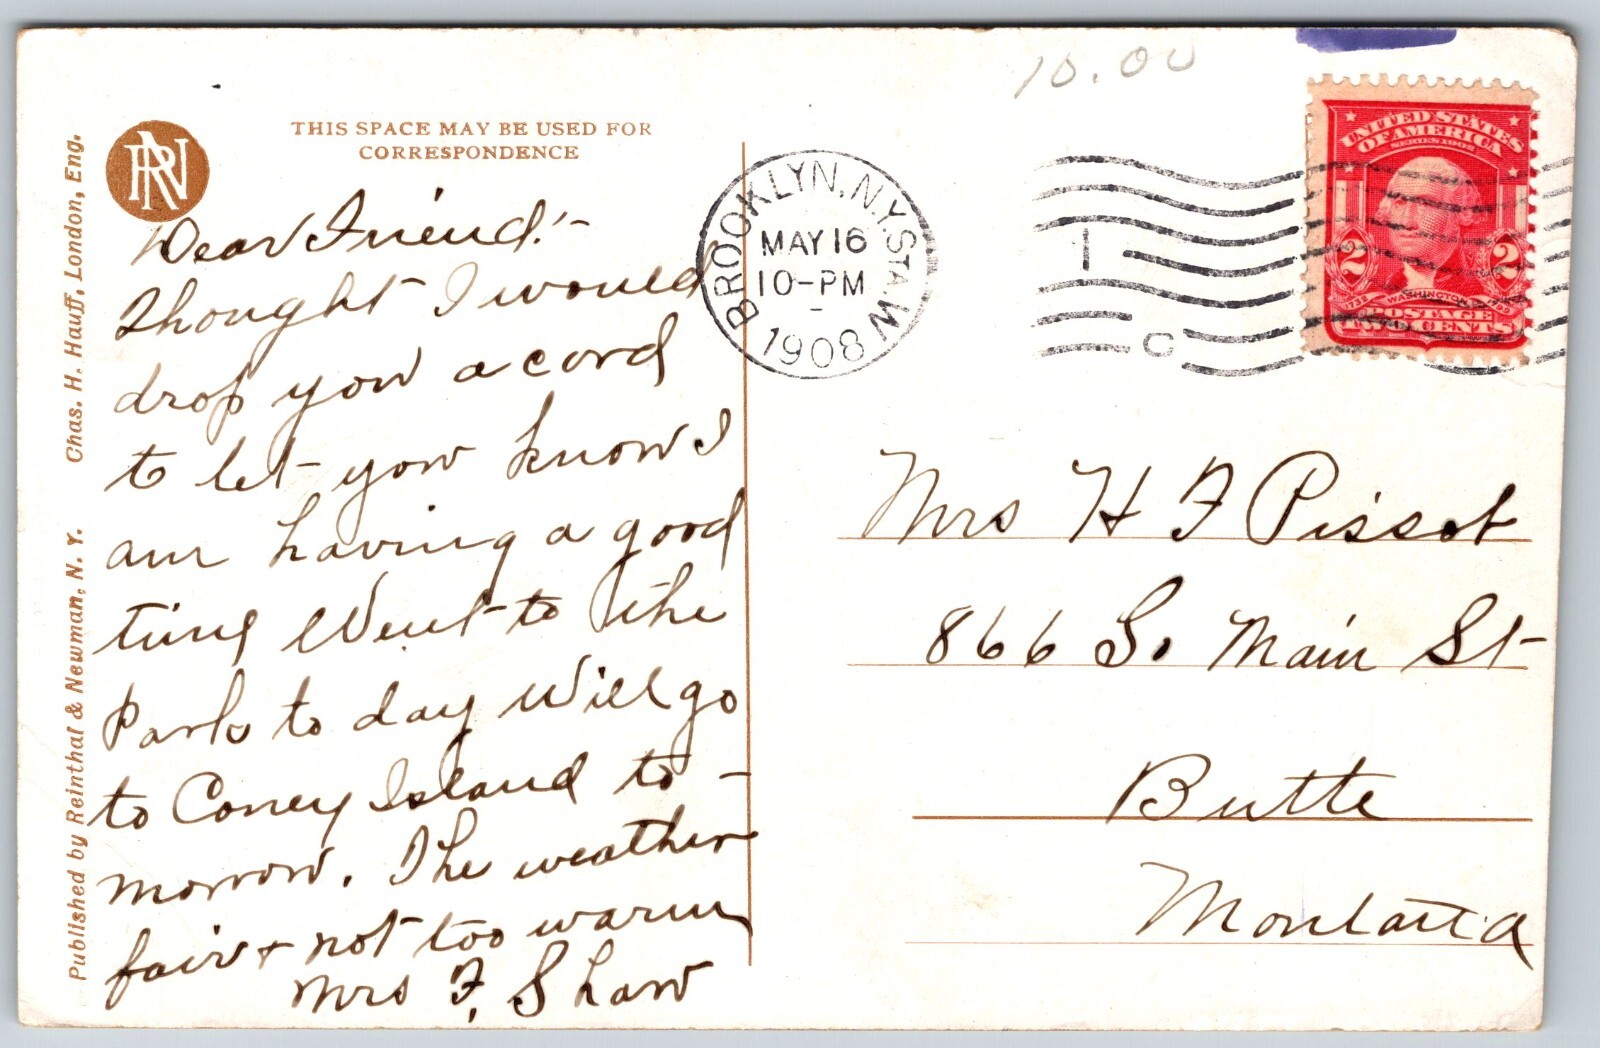 10.00
THIS SPACE MAY BE USED FOR
CORRESPONDENCE
RN
Chas. H. Hauff, London, Eng.
Published by Reinthal & Newman, N. Y.
Dear Friend:-
Thought I would
drop you a card
to let you know I
am having a good
time Went to the
Park to day Will go
to Coney Island to-
morrow. The weather
fair + not too warm
Mrs F. Shaw
BROOKLYN, N.Y. STA. W
MAY 16
10-PM
1908
1
C
UNITED STATES
OF AMERICA
SERIES 1902
2 2
1732 WASHINGTON 1799
POSTAGE
TWO CENTS
Mrs H F Pissot
866 So Main St
Butte
Montana